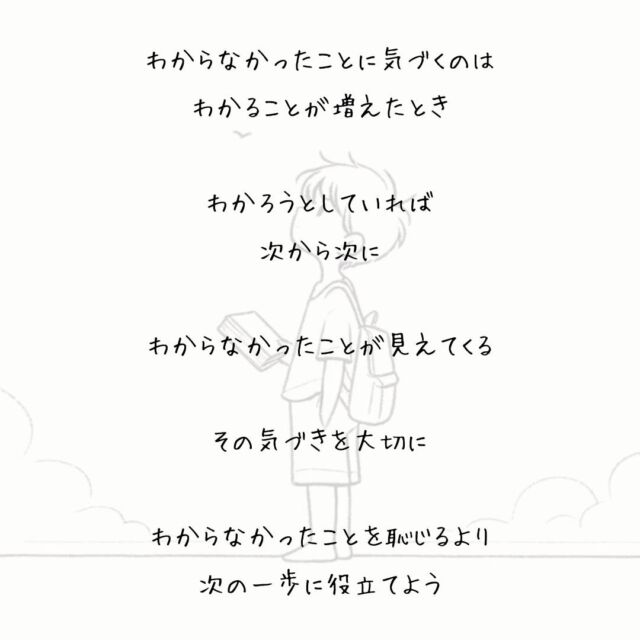 わからなかったことに気づくのは
わかることが増えたとき
わかろうとしていれば
次から次に
わからなかったことが見えてくる
その気づきを大切に
わからなかったことを恥じるより
次の一歩に役立てよう